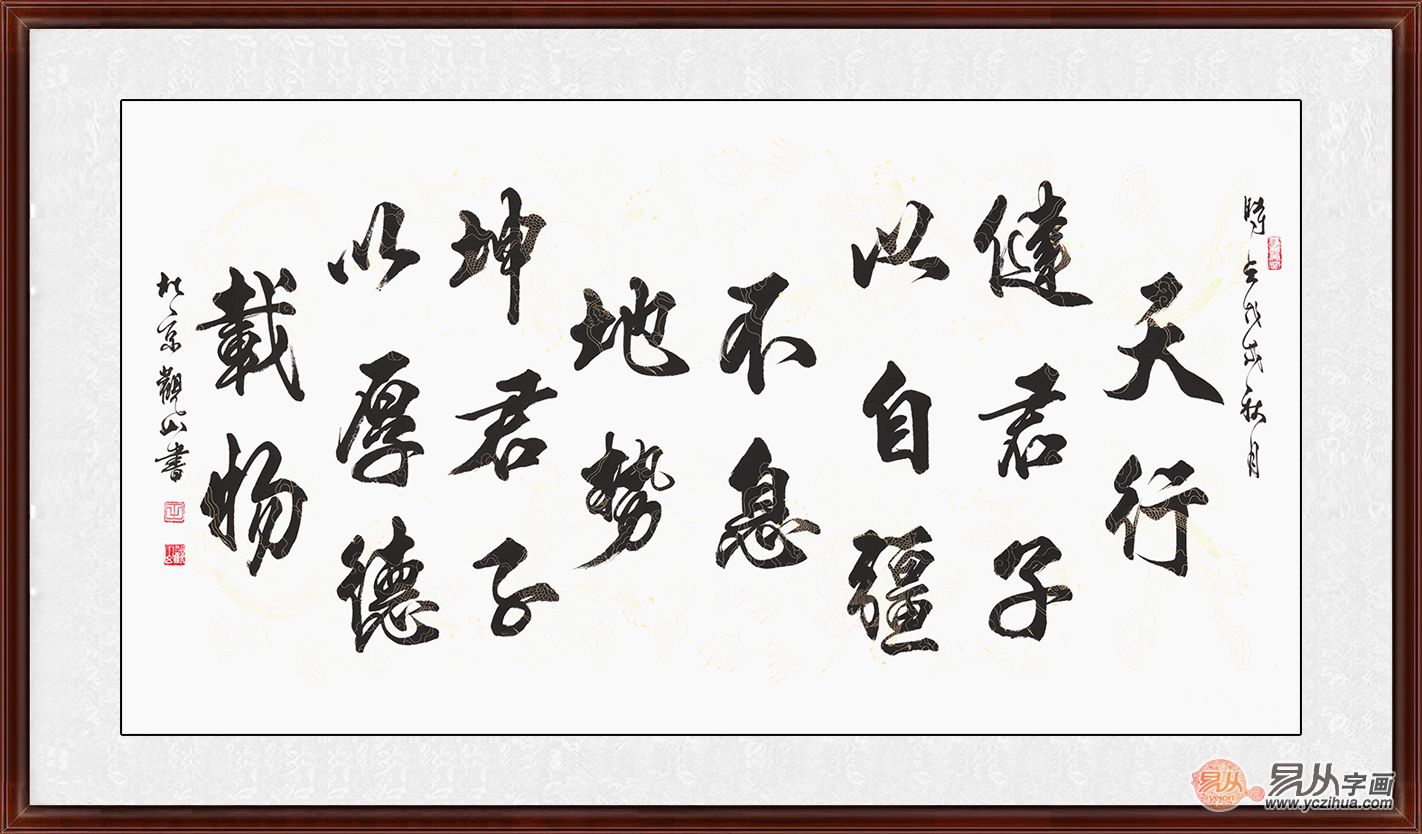 時在戊戌秋月
天行
健君子
以自彊
不息
地勢
坤君子
以厚德
載物
於京觀山書
易从字画
www.yczihua.com